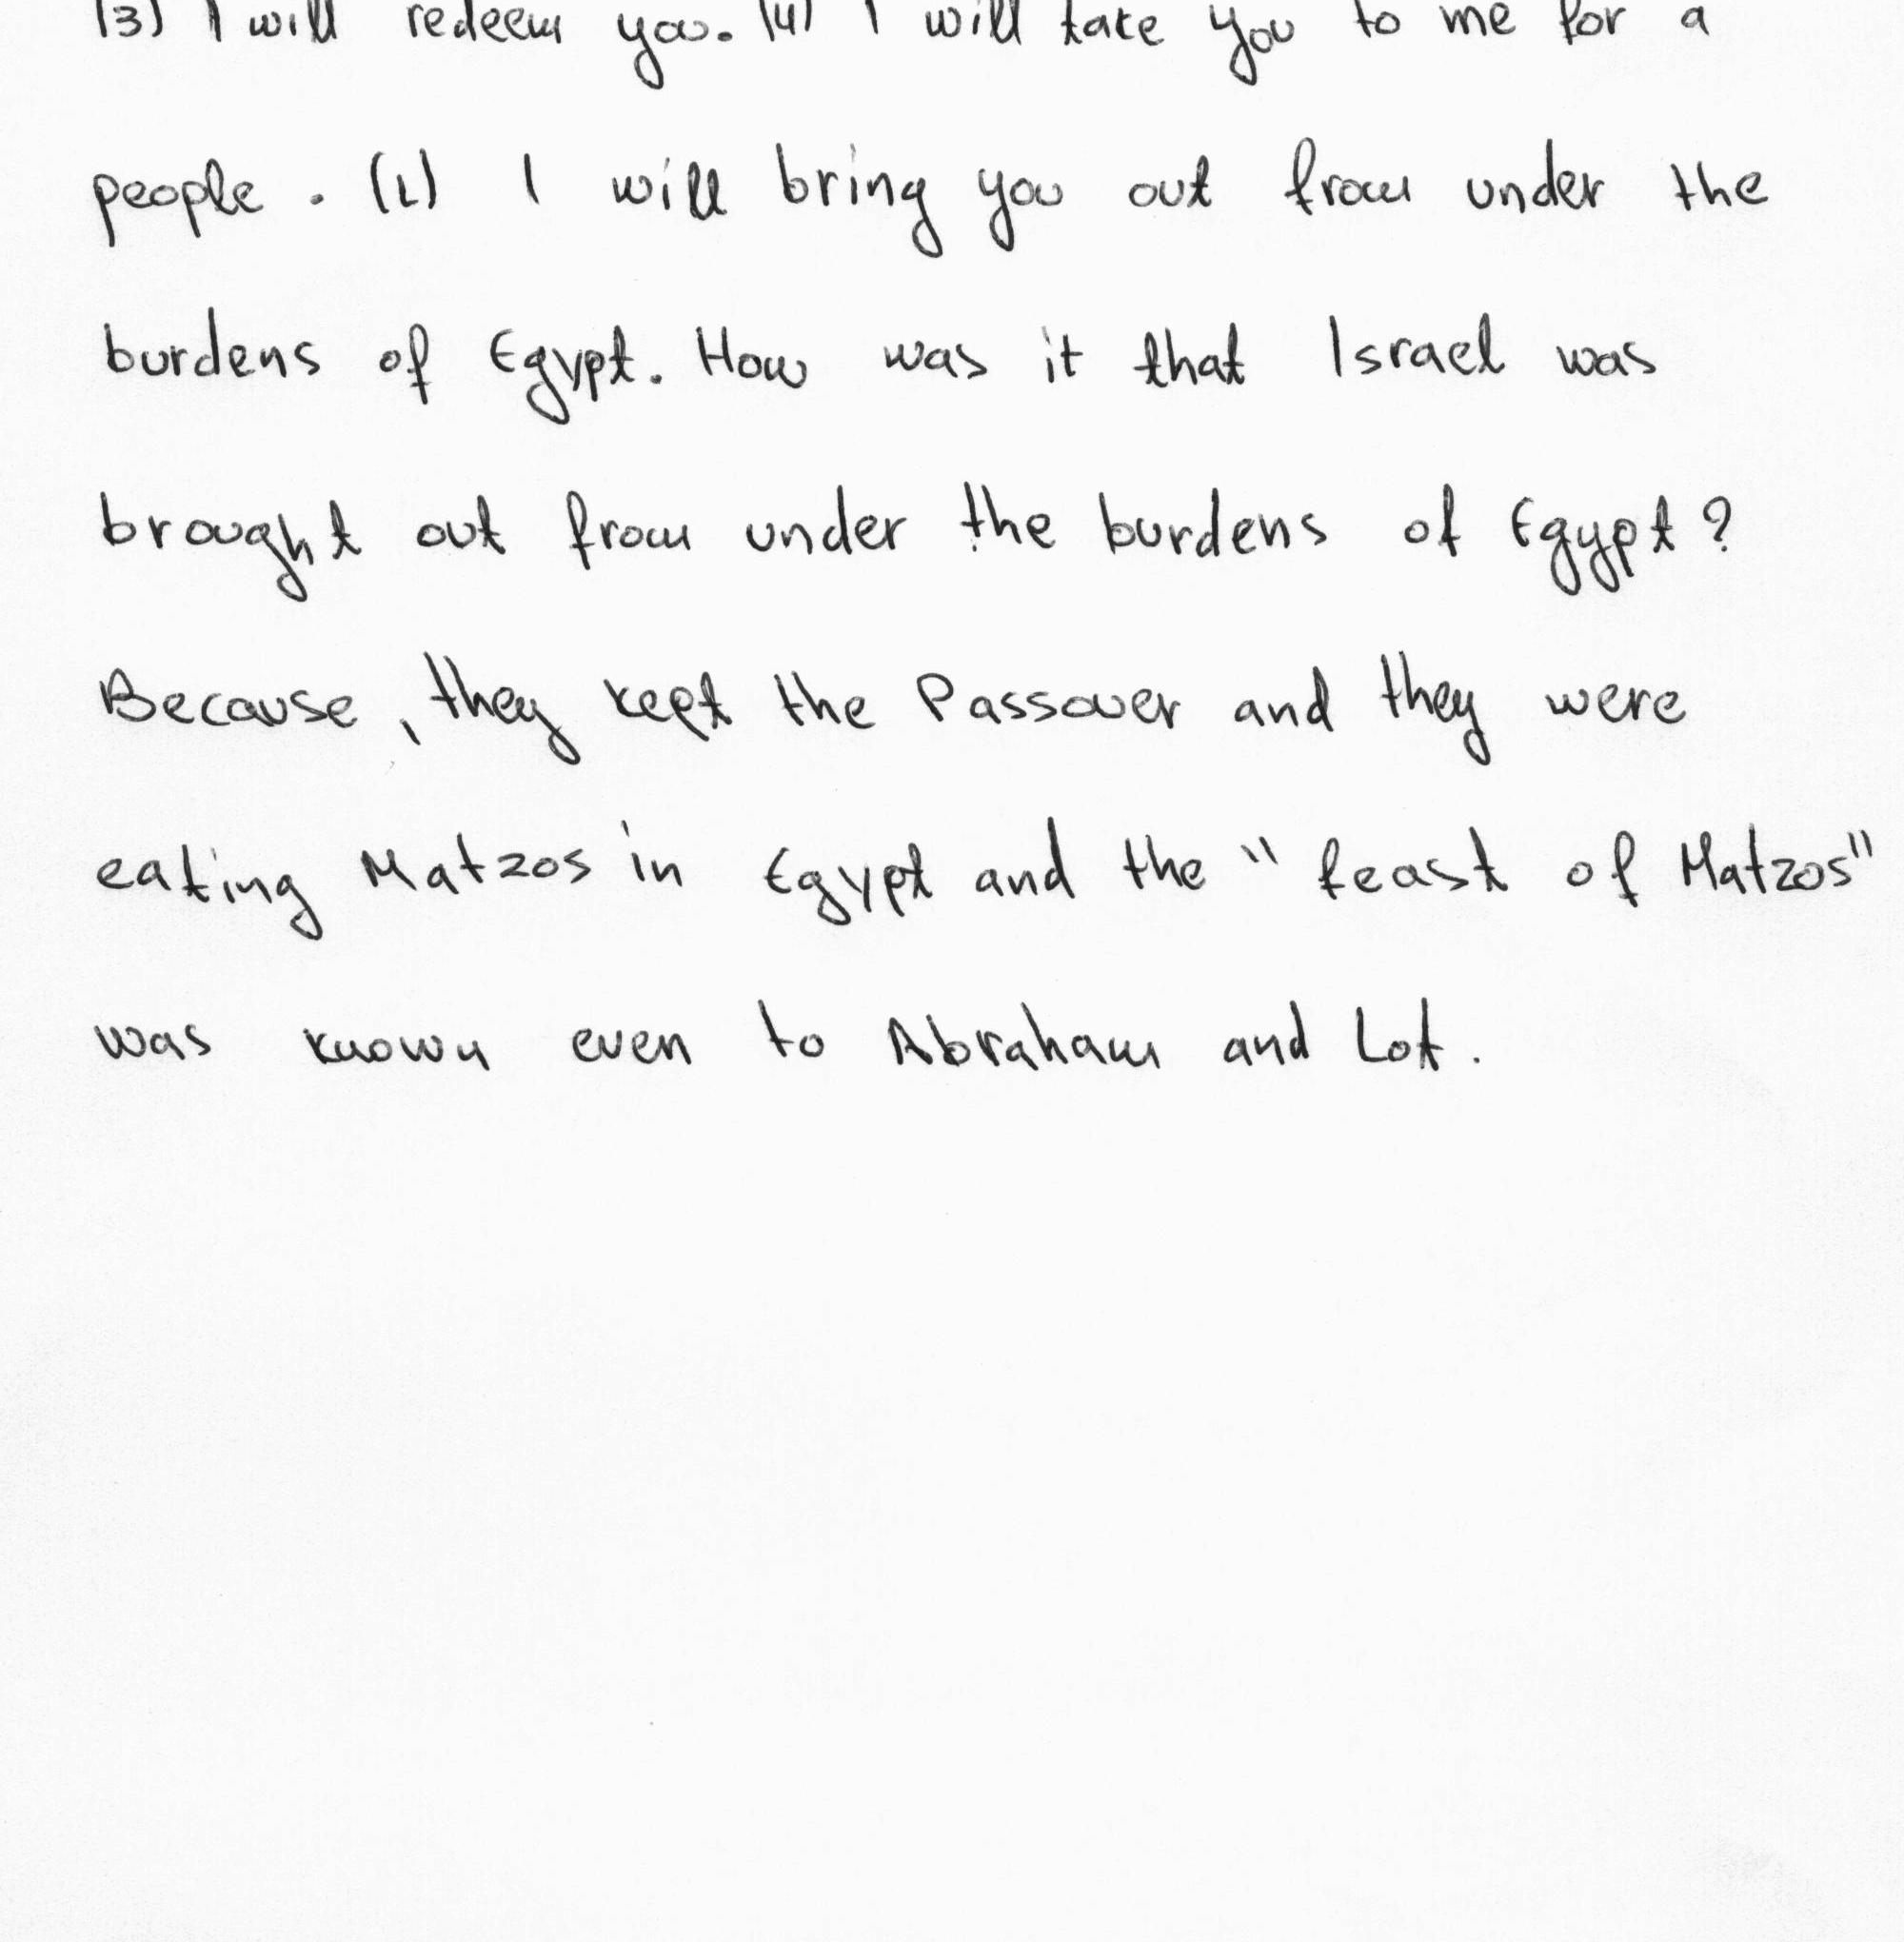 (3) I will redeem you. (4) I will take you to me for a
people. (1) I will bring you out from under the
burdens of Egypt. How was it that Israel was
brought out from under the burdens of Egypt?
Because, they kept the Passover and they were
eating Matzos in Egypt and the "feast of Matzos"
was known even to Abraham and Lot.